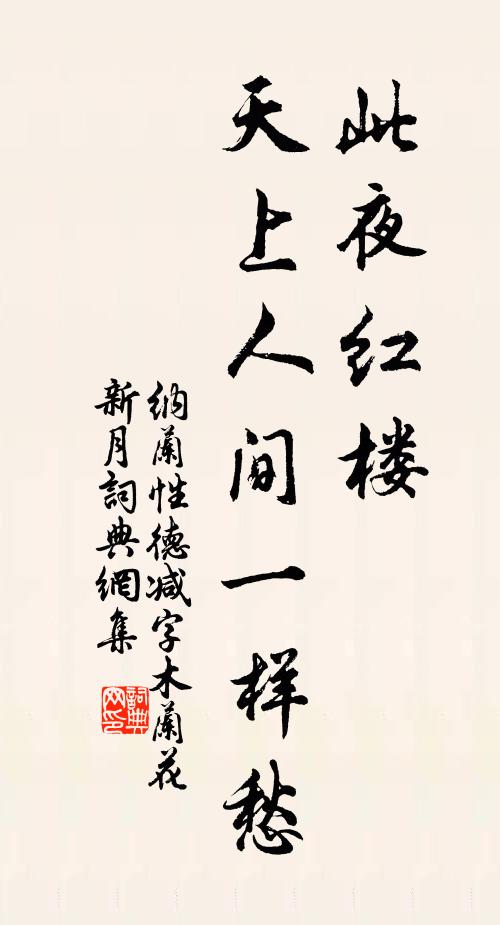 此夜红楼
天上人间一样愁
纳蘭性德减字木蘭花
新月詞典網集
詞典
网印